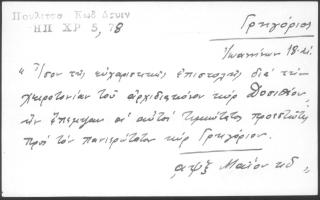 Πουλίτσα Κωδ Δειν
ΗΠ ΧΡ 5, 78
Γρηγόριος
Ἰωαννίνων 18. αἰ.
"Ἴσον τῆς εὐχαριστικῆς ἐπιστολῆς διὰ τὴν
χειροτονίαν τοῦ ἀρχιδιακόνου κὺρ Δοσιθέου
ἣν ἔπεμψαν οἱ αὐτοὶ τιμιώτατοι προεστῶτες
πρὸς τὸν πανιερώτατον κὺρ Γρηγόριον.
αψξ Μαΐου κδ